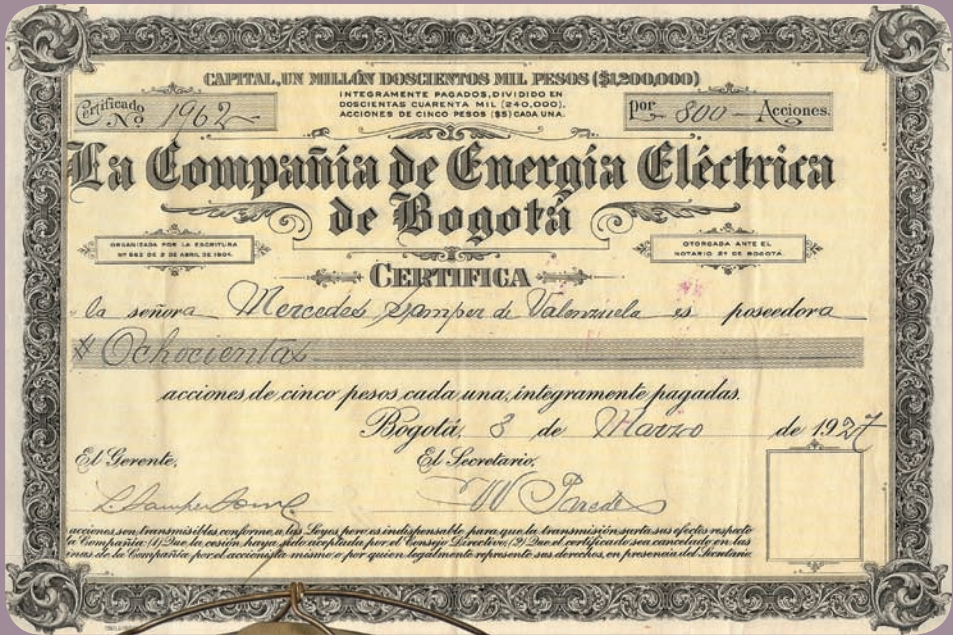 CAPITAL, UN MILLÓN DOSCIENTOS MIL PESOS ($1.200,000)
INTEGRAMENTE PAGADOS, DIVIDIDO EN
DOSCIENTAS CUARENTA MIL (240,000),
ACCIONES DE CINCO PESOS ($5) CADA UNA.
Certificado Nº 1962
por 800 Acciones.
La Compañía de Energía Eléctrica
de Bogotá
ORGANIZADA POR LA ESCRITURA
Nº 582 DE 2 DE ABRIL DE 1904.
OTORGADA ANTE EL
NOTARIO 2º DE BOGOTA.
CERTIFICA
la señora Mercedes Samper de Valenzuela es poseedora
# Ochocientas
acciones de cinco pesos cada una, íntegramente pagadas.
Bogotá, 3 de Marzo de 1927
El Gerente,
El Secretario,
L. Samper
W Paredes
acciones son transmisibles conforme a las Leyes, pero es indispensable para que la transmisión surta sus efectos respecto
la Compañía: (1) Que la cesión haya sido aceptada por el Consejo Directivo; (2) Que el certificado sea cancelado en las
inas de la Compañía por el accionista mismo o por quien legalmente represente sus derechos, en presencia del Secretario